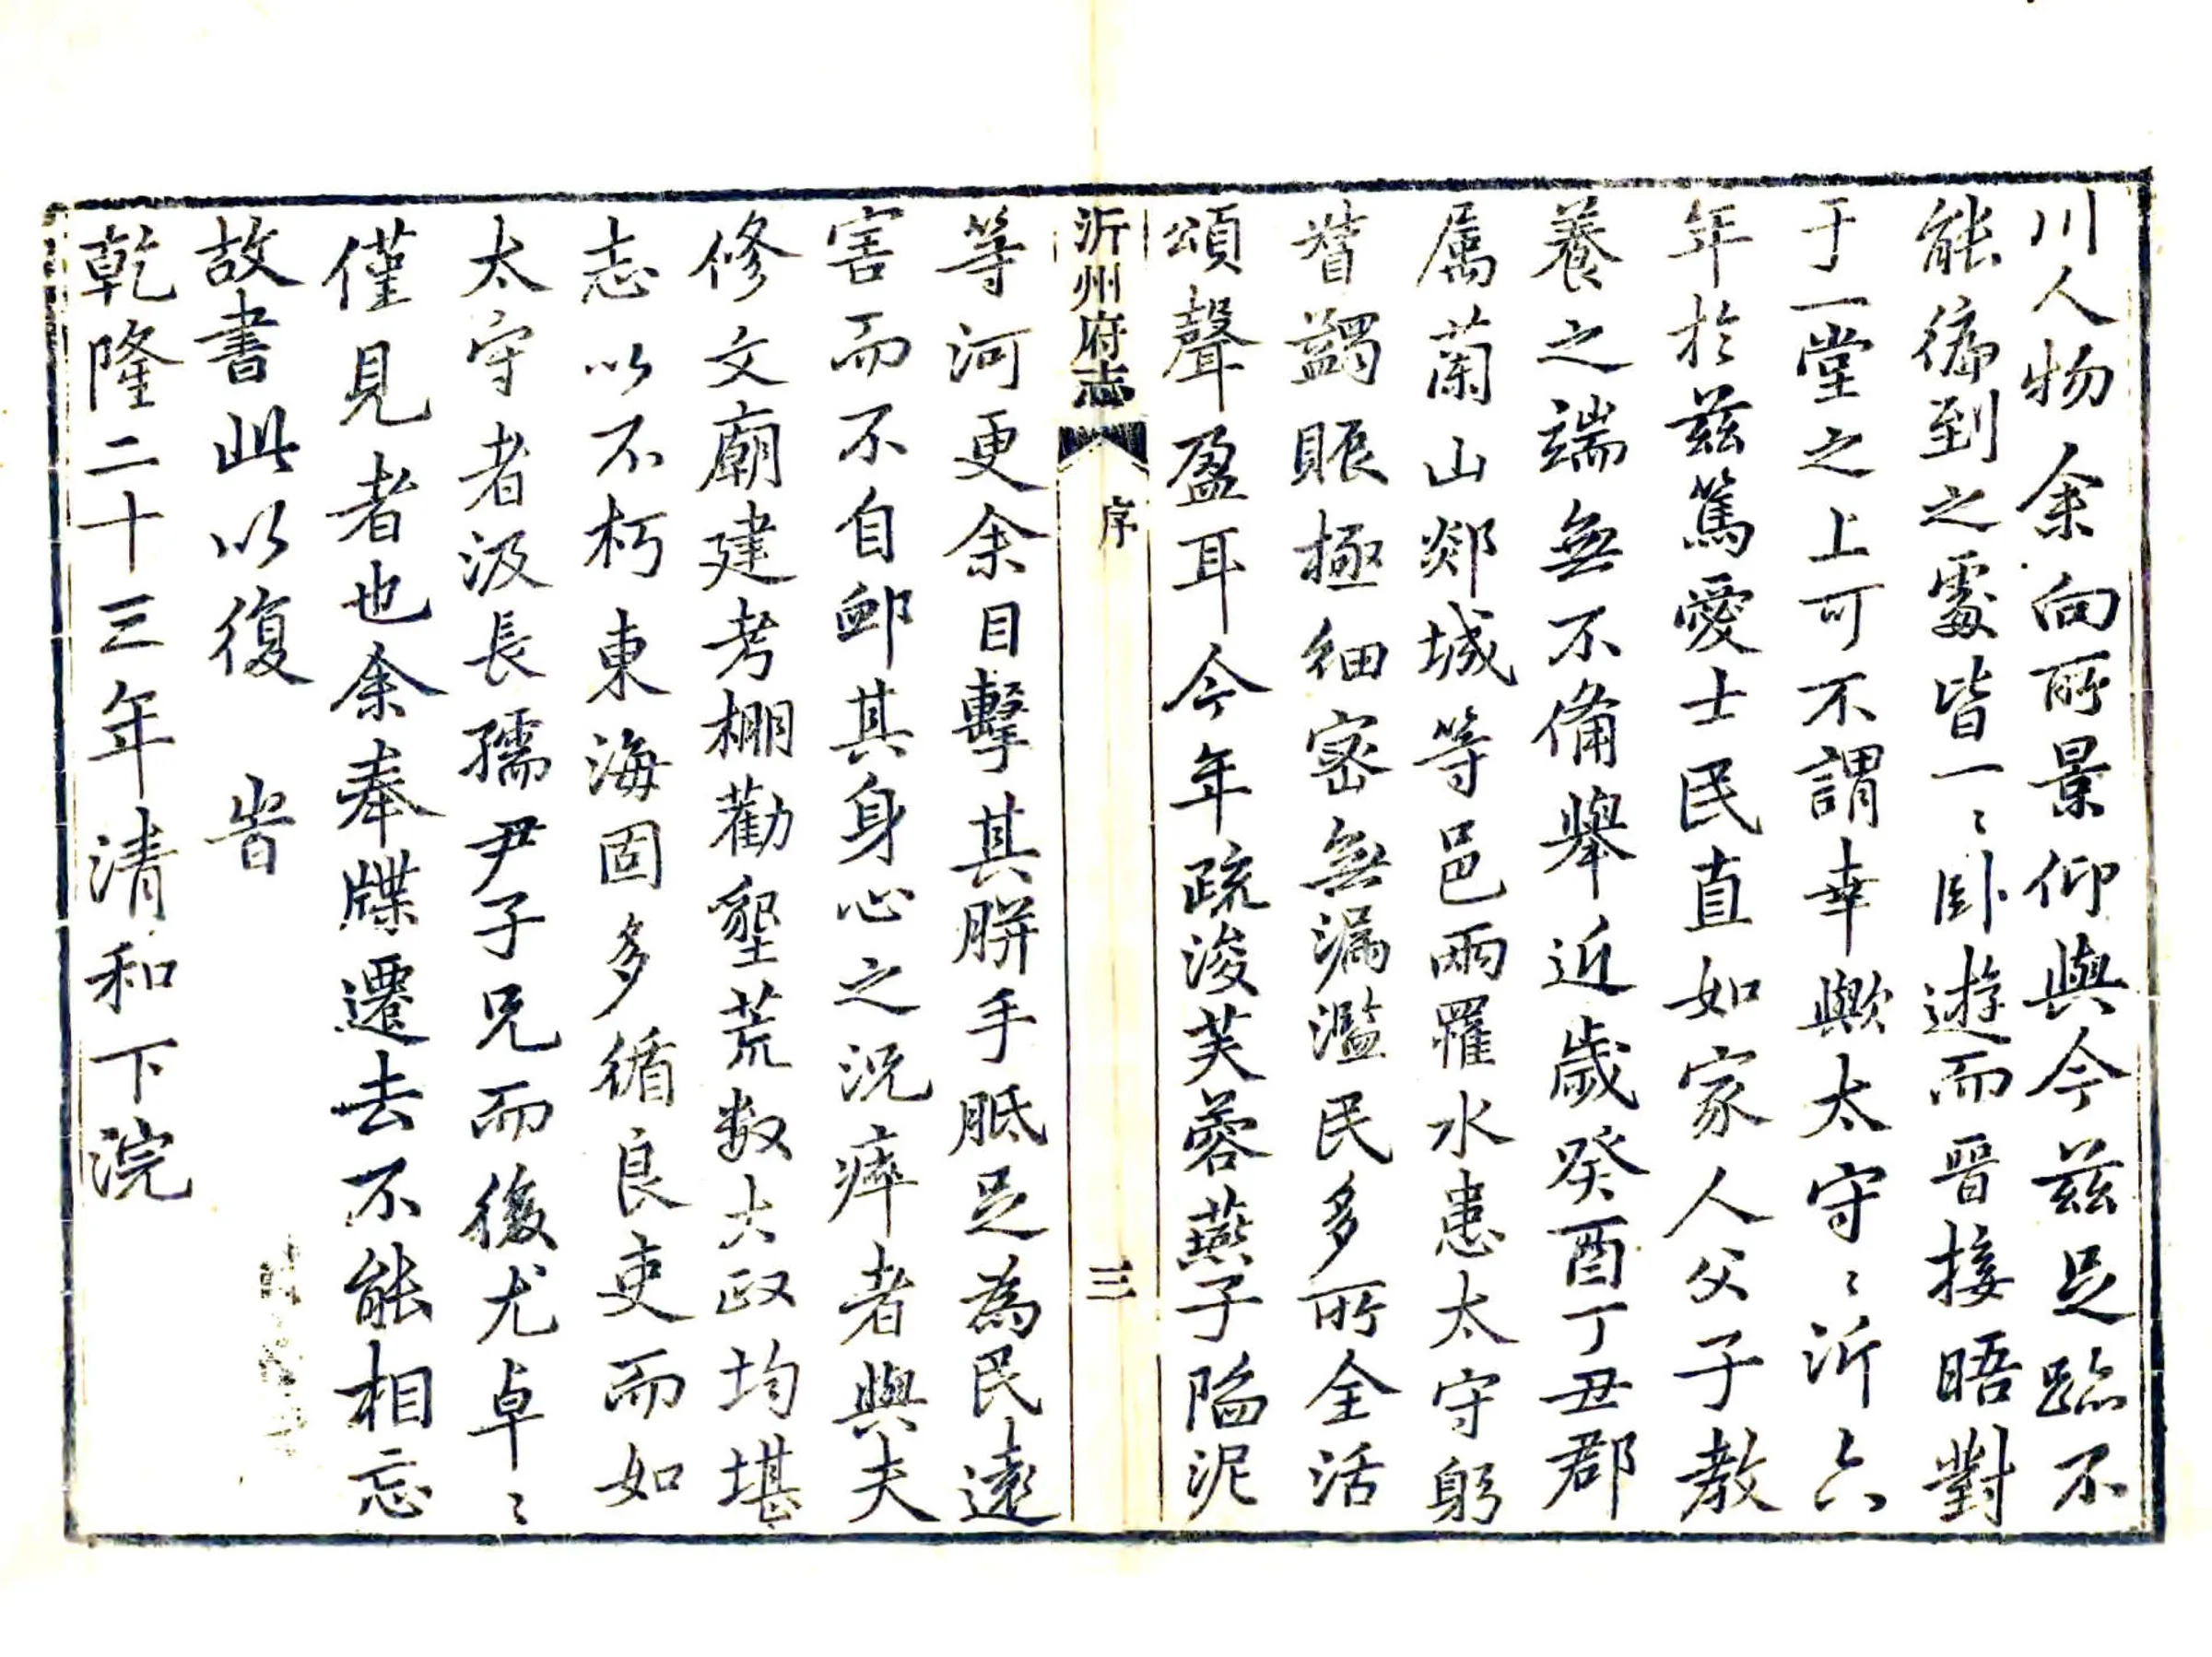 川人物余向所景仰與今茲足跡不
能徧到之處皆一〻臥遊而晉接晤對
于一堂之上可不謂幸歟太守〻沂六
年於茲篤愛士民直如家人父子教
養之端無不俻舉近歲癸酉丁丑郡
属蘭山郯城等邑兩罹水患太守躬
督蠲賑極細密無漏濫民多所全活
頌聲盈耳今年疏浚芙蓉燕子陷泥
沂州府志
序
三
等河更余目擊其胼手胝足為民遠
害而不自卹其身心之况瘁者與夫
修文廟建考棚勸墾荒数大政均堪
志以不朽東海固多循良吏而如
太守者汲長孺尹子兄而後尤卓〻
僅見者也余奉牒遷去不能相忘
故書此以復 旹
乾隆二十三年清和下浣